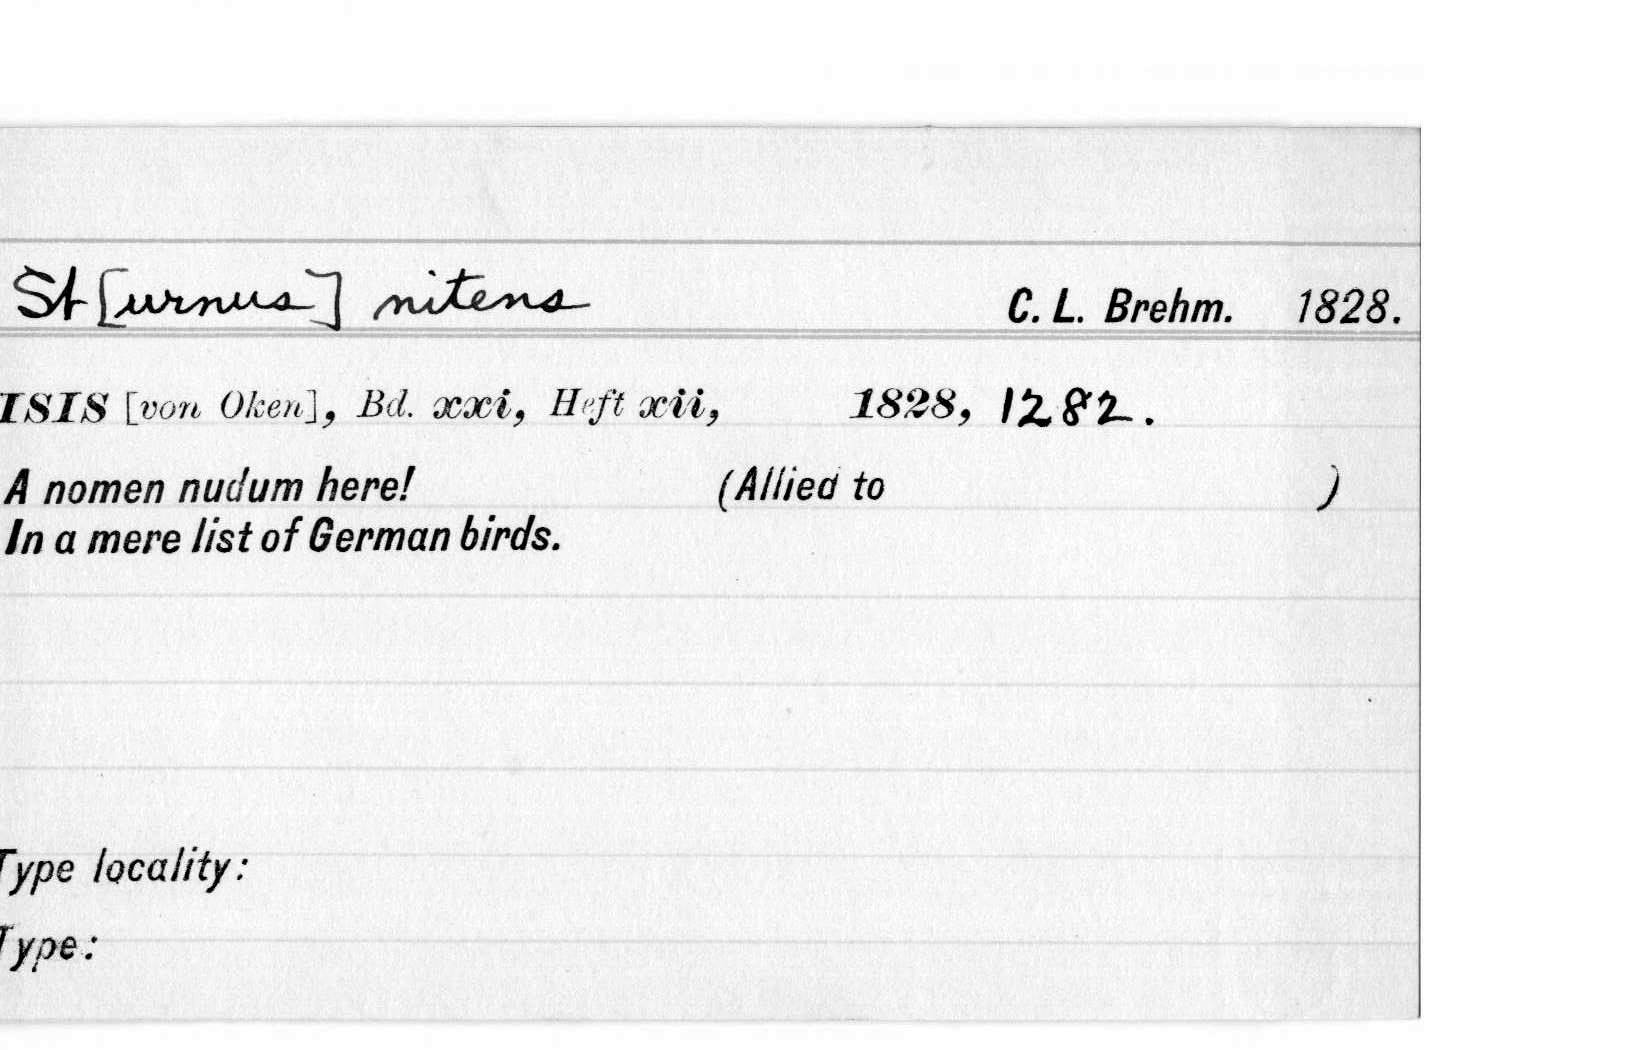 St[urnus] nitens C. L. Brehm. 1828.
ISIS [von Oken], Bd. xxi, Heft xii, 1828, 1282.
A nomen nudum here! (Allied to )
In a mere list of German birds.
Type locality:
Type: